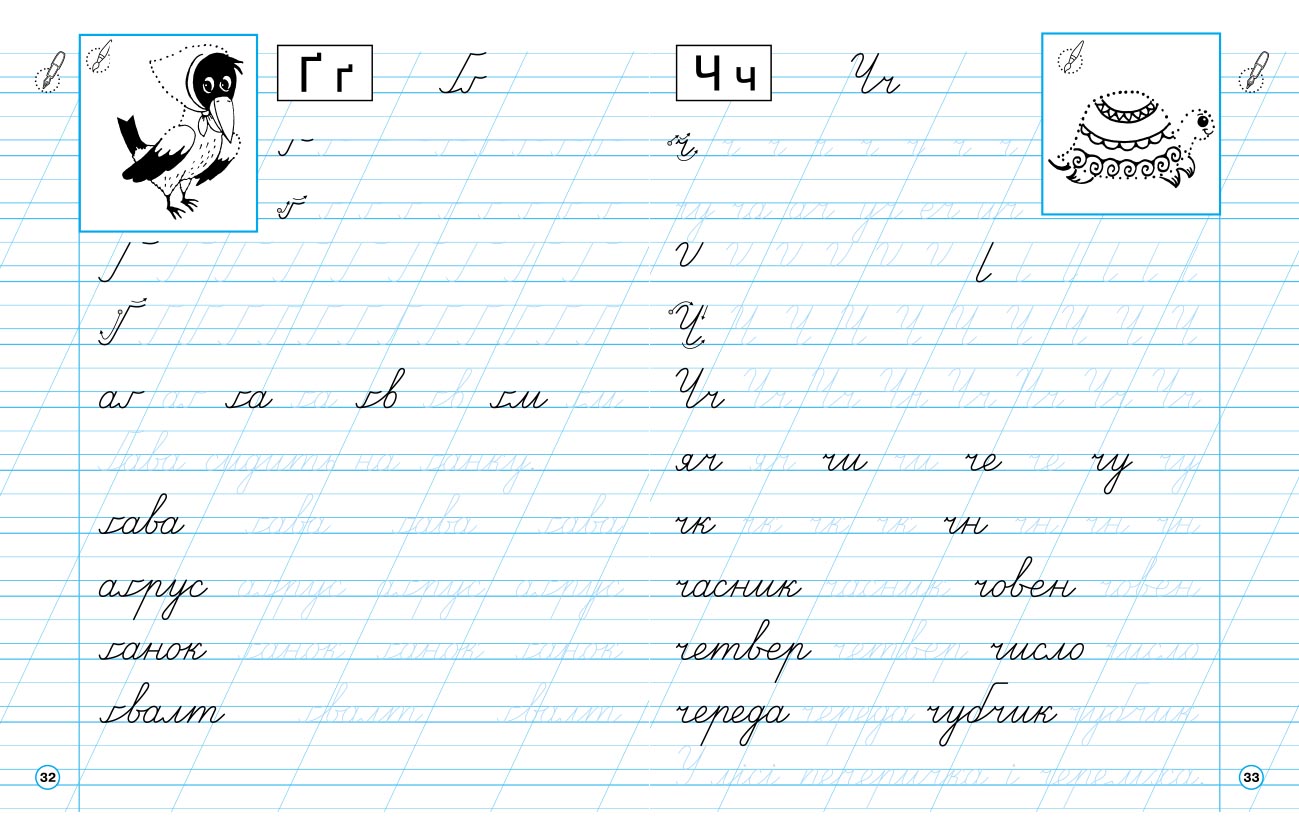 Ґ ґ Ґґ
ґ ґ ґ ґ ґ ґ ґ ґ
Ґ Ґ Ґ Ґ Ґ Ґ Ґ Ґ Ґ Ґ
аґ аґ ґа ґа ґв ґв ґм ґм
Ґава сидить на ґанку.
ґава ґава ґава ґава
аґрус аґрус аґрус аґрус
ґанок ґанок ґанок ґанок
ґвалт ґвалт ґвалт
32
Ч ч Чч
ч ч ч ч ч ч ч ч
чу ча ач уч еч ич
Ч Ч Ч Ч Ч Ч Ч Ч Ч Ч
Чч Чч Чч Чч Чч Чч Чч Чч
яч яч чи чи че че чу чу
чк чк чк чк чн чн чн чн
часник часник човен човен
четвер четвер число число
череда череда чубчик чубчик
У лісі печеричка і черемха.
33